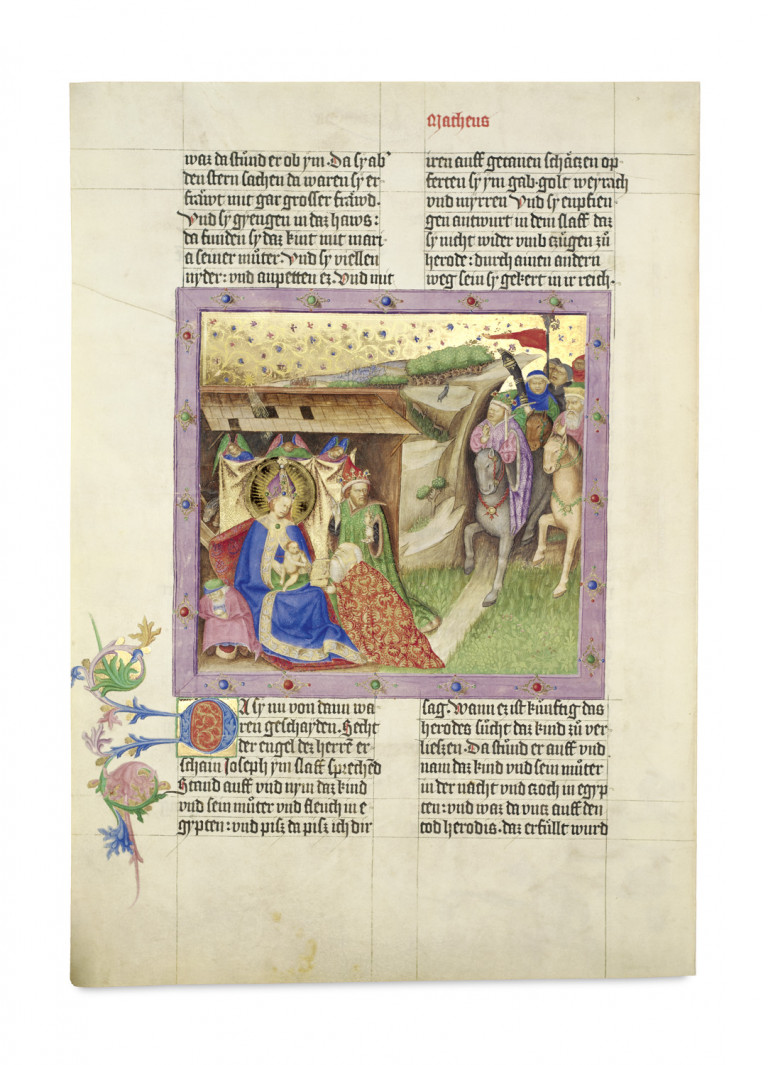 Matheus
waz da stůnd er ob ym. Da sy ab
den stern sachen da waren sy er-
fräwt mit gar grosser fräwd.
Vnd sy gyengen in daz haws:
da funden sy daz kint mit mari-
a seiner můter. Vnd sy viellen
nyder: vnd anpetten ez. Vnd mit
iren auff getanen schätzen op-
ferten sy ym gab. golt weyrach
vnd myrren Vnd sy enpfien-
gen antwurt in dem slaff daz
sy nicht wider vmb tzügen zů
herode: durch ainen andern
weg sein sy gekert in ir reich.
DA sy nu von dann wa-
ren geschayden. Secht
der engel dez herrē er-
schain Joseph ym slaff sprechēd
Stand auff vnd nym daz kind
vnd sein můter vnd fleuch in e-
gypten: vnd pisz da pisz ich dir
sag. Wann ez ist künftig das
herodes sůcht daz kind zů ver-
lieszen. Da stůnd er auff vnd
nam daz kind vnd sein můter
in der nacht vnd tzoch in egyp-
ten: vnd waz da vntz auff den
tod herodis. daz erfüllt wurd